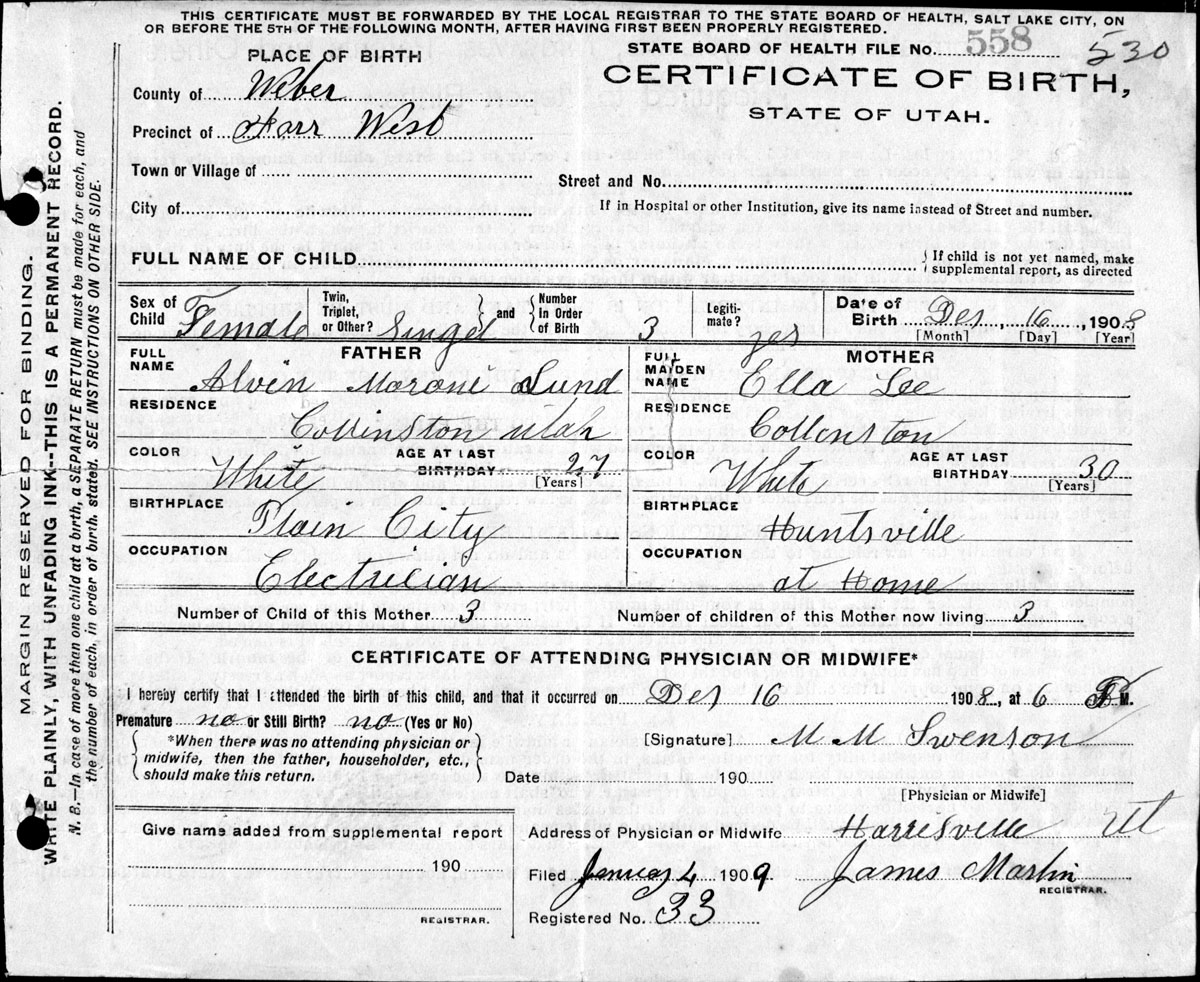 THIS CERTIFICATE MUST BE FORWARDED BY THE LOCAL REGISTRAR TO THE STATE BOARD OF HEALTH, SALT LAKE CITY, ON
OR BEFORE THE 5TH OF THE FOLLOWING MONTH, AFTER HAVING FIRST BEEN PROPERLY REGISTERED.
MARGIN RESERVED FOR BINDING.
WRITE PLAINLY, WITH UNFADING INK--THIS IS A PERMANENT RECORD.
N. B.—In case of more then one child at a birth, a SEPARATE RETURN must be made for each, and
the number of each, in order of birth, stated. SEE INSTRUCTIONS ON OTHER SIDE.
PLACE OF BIRTH
County of Weber
Precinct of Farr West
Town or Village of
City of
STATE BOARD OF HEALTH FILE No. 558 530
CERTIFICATE OF BIRTH,
STATE OF UTAH.
Street and No.
If in Hospital or other Institution, give its name instead of Street and number.
FULL NAME OF CHILD { If child is not yet named, make supplemental report, as directed
Sex of Child Female Twin, Triplet, or Other? Singel } and { Number in Order of Birth 3 Legiti-mate? yes Date of Birth Des, 16, 1908
[Month] [Day] [Year]
FATHER
FULL NAME Alvin Morone Lund
RESIDENCE
Collinston Utah
COLOR White AGE AT LAST BIRTHDAY 27
[Years]
BIRTHPLACE
Plain City
OCCUPATION
Electrician
MOTHER
FULL MAIDEN NAME Ella Lee
RESIDENCE
Collonston
COLOR White AGE AT LAST BIRTHDAY 30
[Years]
BIRTHPLACE
Huntsville
OCCUPATION
at Home
Number of Child of this Mother 3 Number of children of this Mother now living 3
CERTIFICATE OF ATTENDING PHYSICIAN OR MIDWIFE*
I hereby certify that I attended the birth of this child, and that it occurred on Des 16 1908, at 6 P M.
Premature no or Still Birth? no (Yes or No)
{ *When there was no attending physician or
midwife, then the father, householder, etc.,
should make this return. }
[Signature] M M Swenson
Date 190
[Physician or Midwife]
Give name added from supplemental report
190
REGISTRAR.
Address of Physician or Midwife Harrisville Ut
Filed January 4 1909 James Martin
REGISTRAR.
Registered No. 33